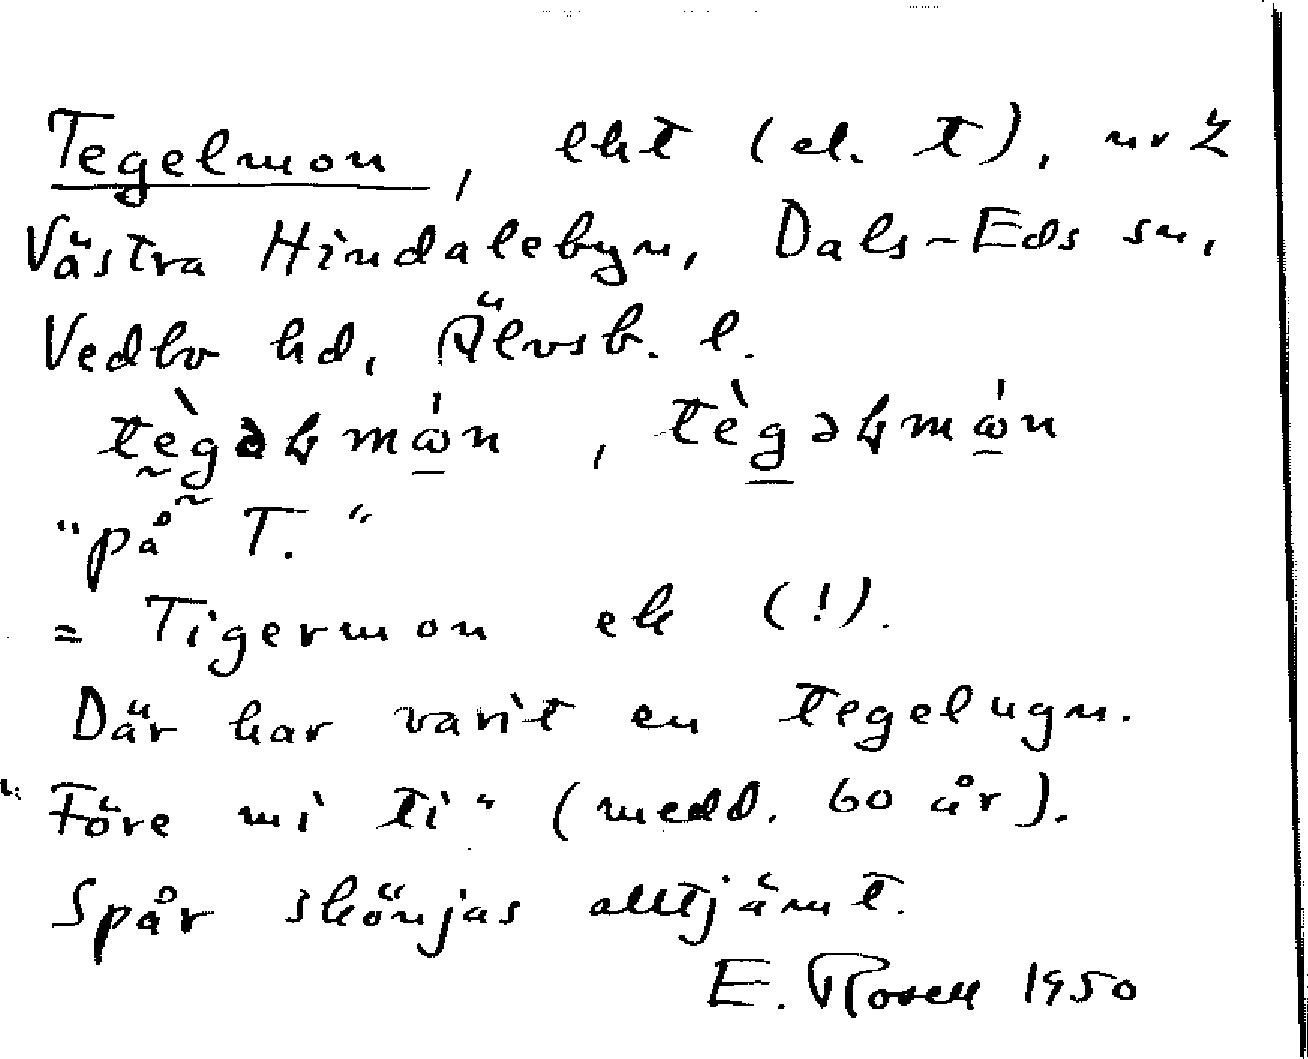 Tegelmon, lht (el. t), nr 2
Västra Hindalebyn, Dals-Eds sn,
Vedbo hd, Älvsb. l.
tègəɫmòn, tègəɫmòn
"på T."
= Tigermon ek (!).
Där har varit en tegelugn.
"Före mi ti" (medd. 60 år).
Spår skönjas alltjämt.
E. Rosell 1950